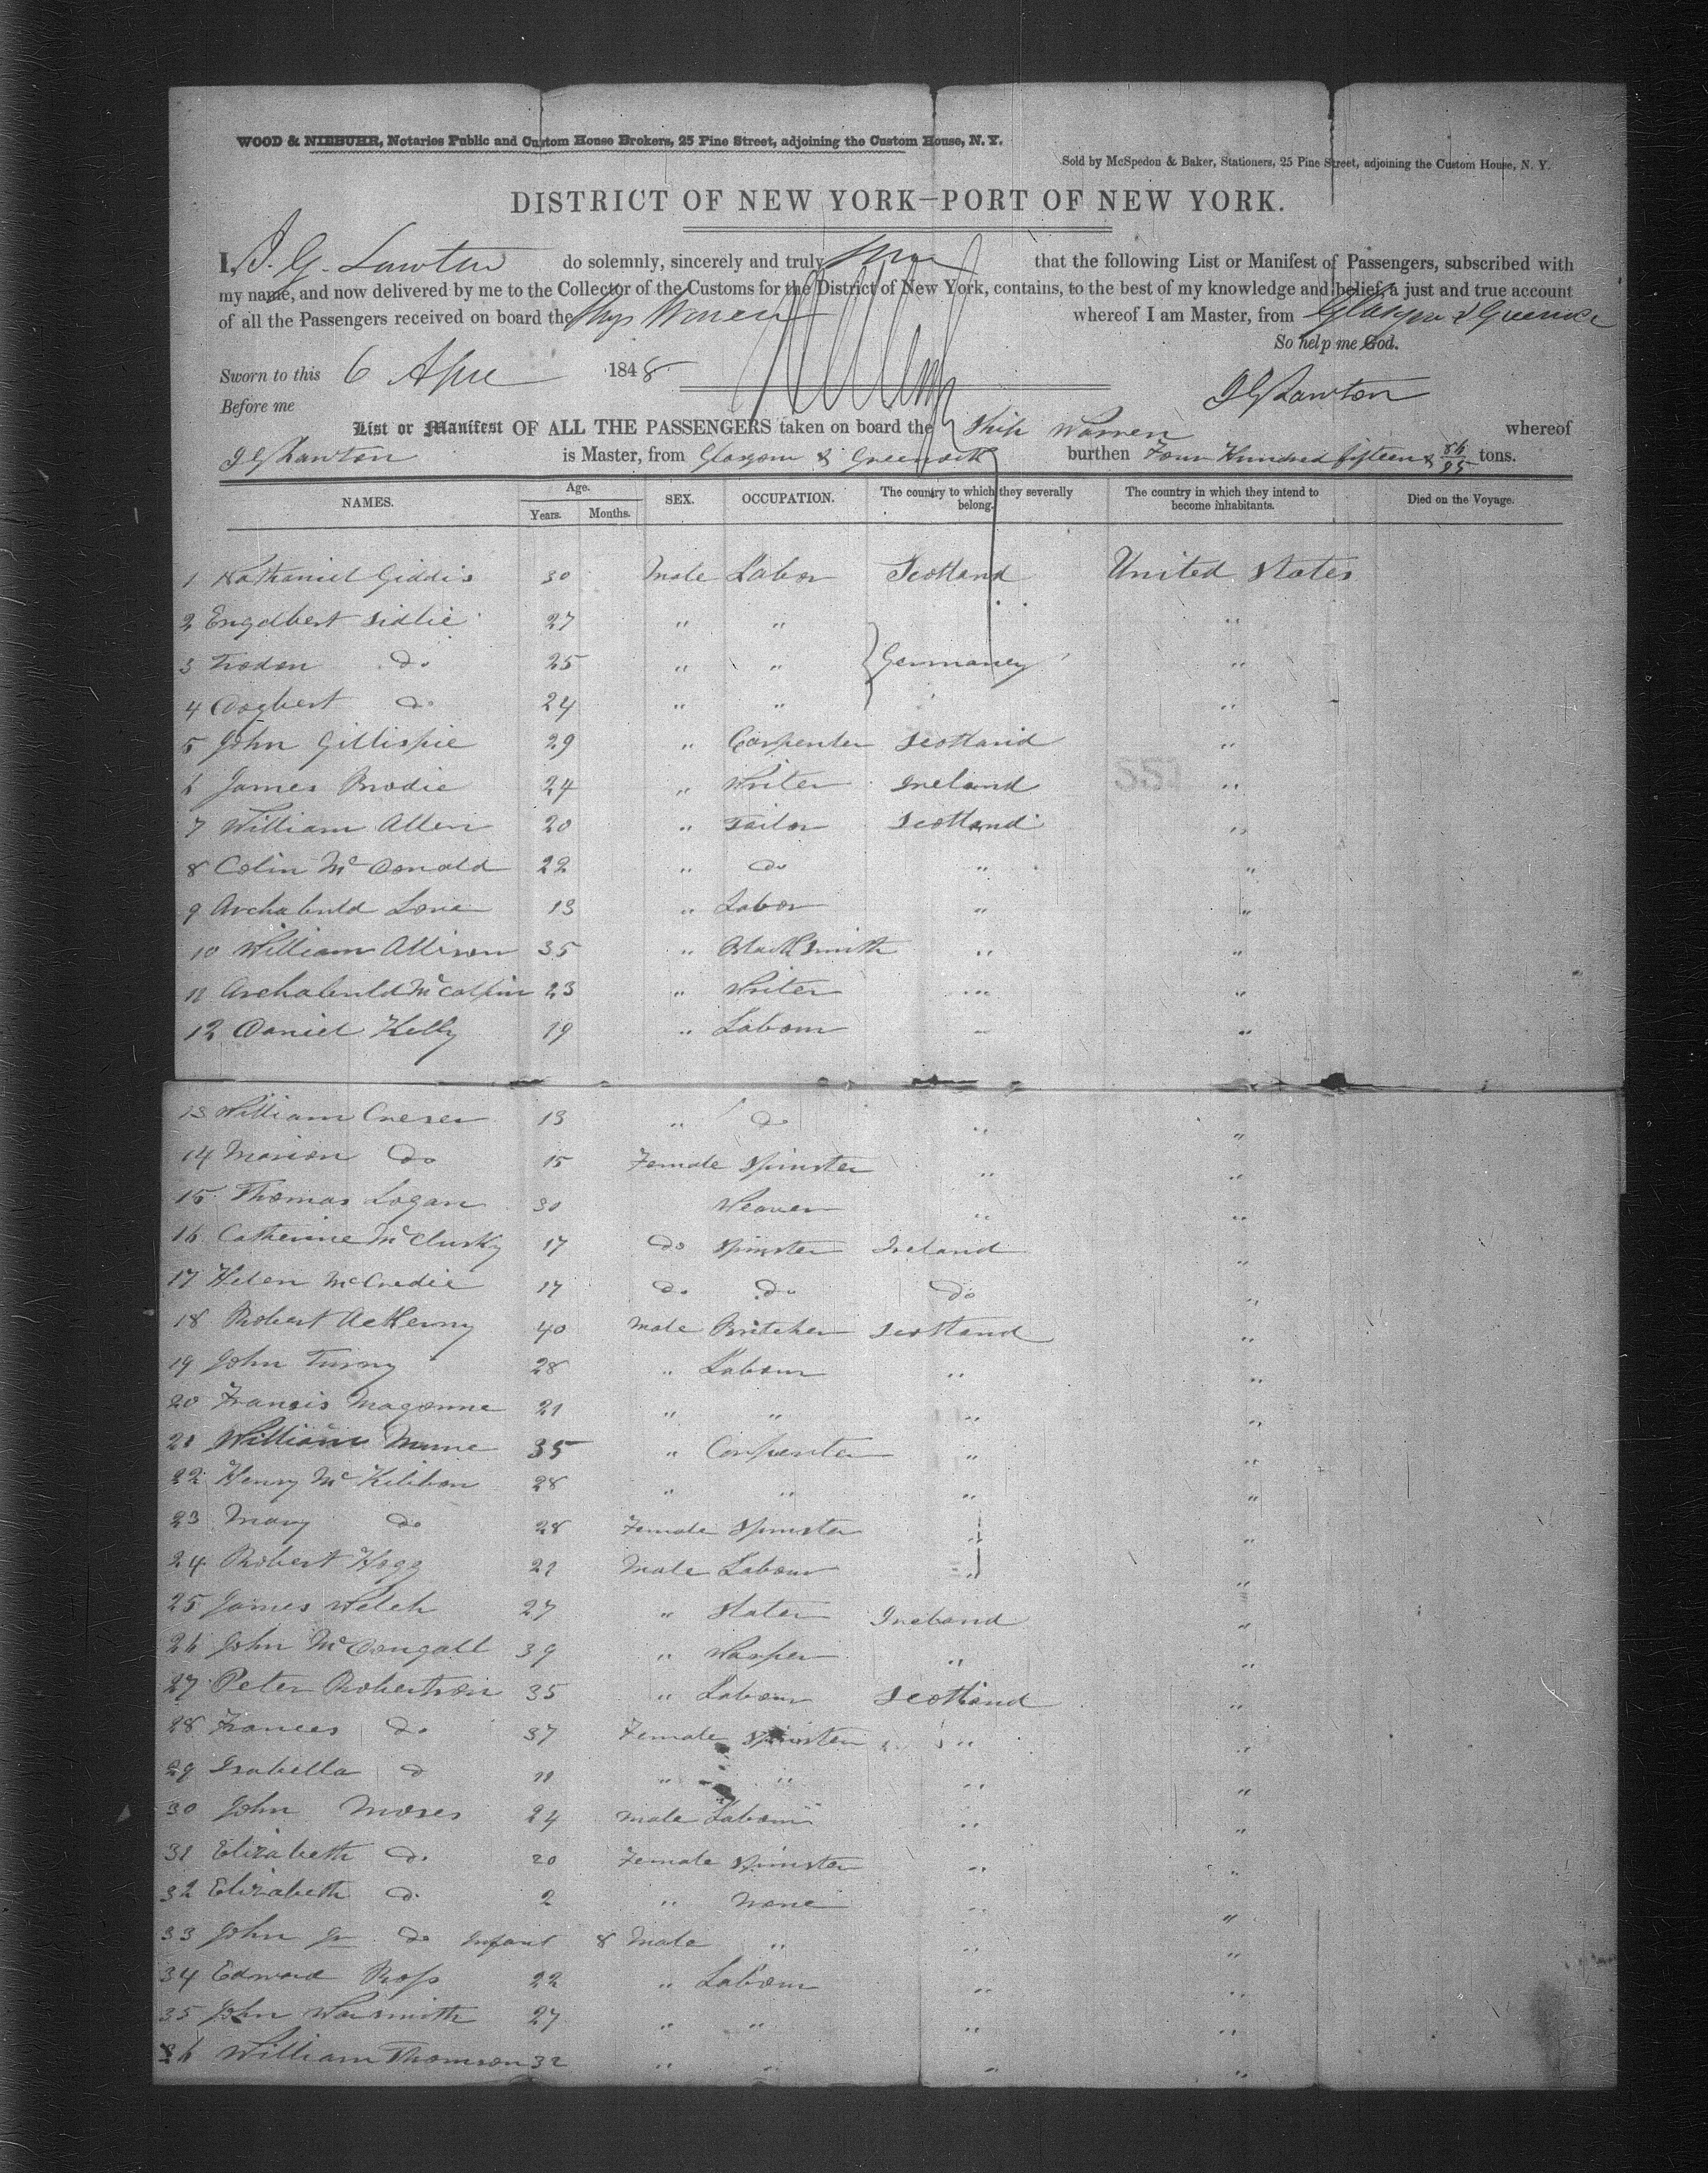 WOOD & NIEBUHR, Notaries Public and Custom House Brokers, 25 Pine Street, adjoining the Custom House, N. Y.
Sold by McSpedon & Baker, Stationers, 25 Pine Street, adjoining the Custom House, N. Y.
DISTRICT OF NEW YORK—PORT OF NEW YORK.
I, J. G. Lawton do solemnly, sincerely and truly that the following List or Manifest of Passengers, subscribed with
my name, and now delivered by me to the Collector of the Customs for the District of New York, contains, to the best of my knowledge and belief, a just and true account
of all the Passengers received on board the Ship Warren whereof I am Master, from Glasgow & Greenock
So help me God.
Sworn to this 6 Apre 1848
J G Lawton
Before me
List or Manifest OF ALL THE PASSENGERS taken on board the Ship Warren whereof
J G Lawton is Master, from Glasgow & Greenock burthen Four Hundred fifteen & 86/95 tons.
NAMES. Age. Years. Months. SEX. OCCUPATION. The country to which they severally belong. The country in which they intend to become inhabitants. Died on the Voyage.
1 Nathaniel Giddis 30 Male Labor Scotland United States
2 Engelbert Sidlie 27 " " "
3 do 25 " " Germaney "
4 Dogbert do 24 " " "
5 John Gillispie 29 " Carpenter Scotland "
6 James Brodie 24 " Writer Ireland "
7 William Allen 20 " Tailor Scotland "
8 Colin McDonald 22 " do " "
9 Archabuld Love 13 " Labor " "
10 William Allison 35 " BlackSmith " "
11 Archabuld McCalpin 23 " Writer " "
12 Daniel Kelly 19 " Labour " "
13 William 13 " do " "
14 Marion do 15 Female Spinster " "
15 Thomas Logan 30 Weaver " "
16 Catherine McClusky 17 do Spinster Ireland "
17 Helen McCredie 17 do do do "
18 Robert 40 Male Scotland "
19 John 28 " Labour " "
20 Francis Magonne 21 " " " "
21 William 35 " Carpenter " "
22 Henry McKibbon 28 " " " "
23 Mary do 28 Female Spinster " "
24 Robert Hogg 21 Male Labour " "
25 James Welch 27 " Slater Ireland "
26 John McDougall 39 " Warper " "
27 Peter Robertson 35 " Labour Scotland "
28 Frances do 37 Female Spinster " "
29 Isabella do 11 " " " "
30 John Moses 24 Male Labour " "
31 Elizabeth do 20 Female Spinster " "
32 Elizabeth do 2 " None " "
33 John Jr do Infant 8 Male " " "
34 Edward Ross 22 " Labour " "
35 John 27 " " " "
36 William Thomson 32 " " " "